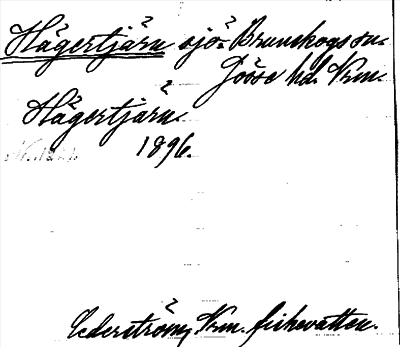 Hägertjärn sjö. Brunskogs sn.
Jösse hd. Vrm.
Hägertjärn.
1896.
Cederström, Vrm. fiskevatten.